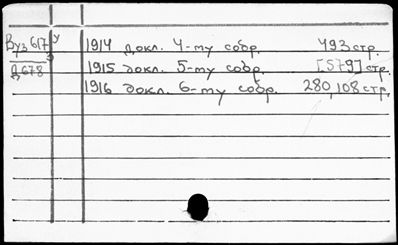 Вуз 617 у
Д 678
1914 докл. 4-му собр. 493 стр.
1915 докл. 5-му собр. [579] стр.
1916 докл. 6-му собр. 280,108 стр.